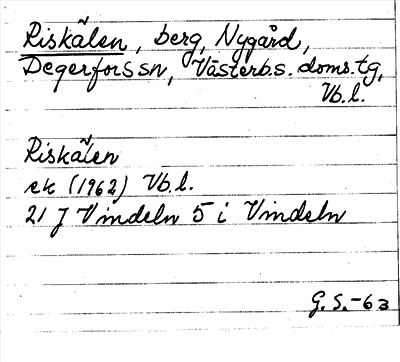 Riskålen, berg, Nygård,
Degerfors sn, Västerb.s. doms.tg,
Vb.l.
Riskålen
ek (1962) Vb.l.
21 J Vindeln 5 i Vindeln
G.S.-63